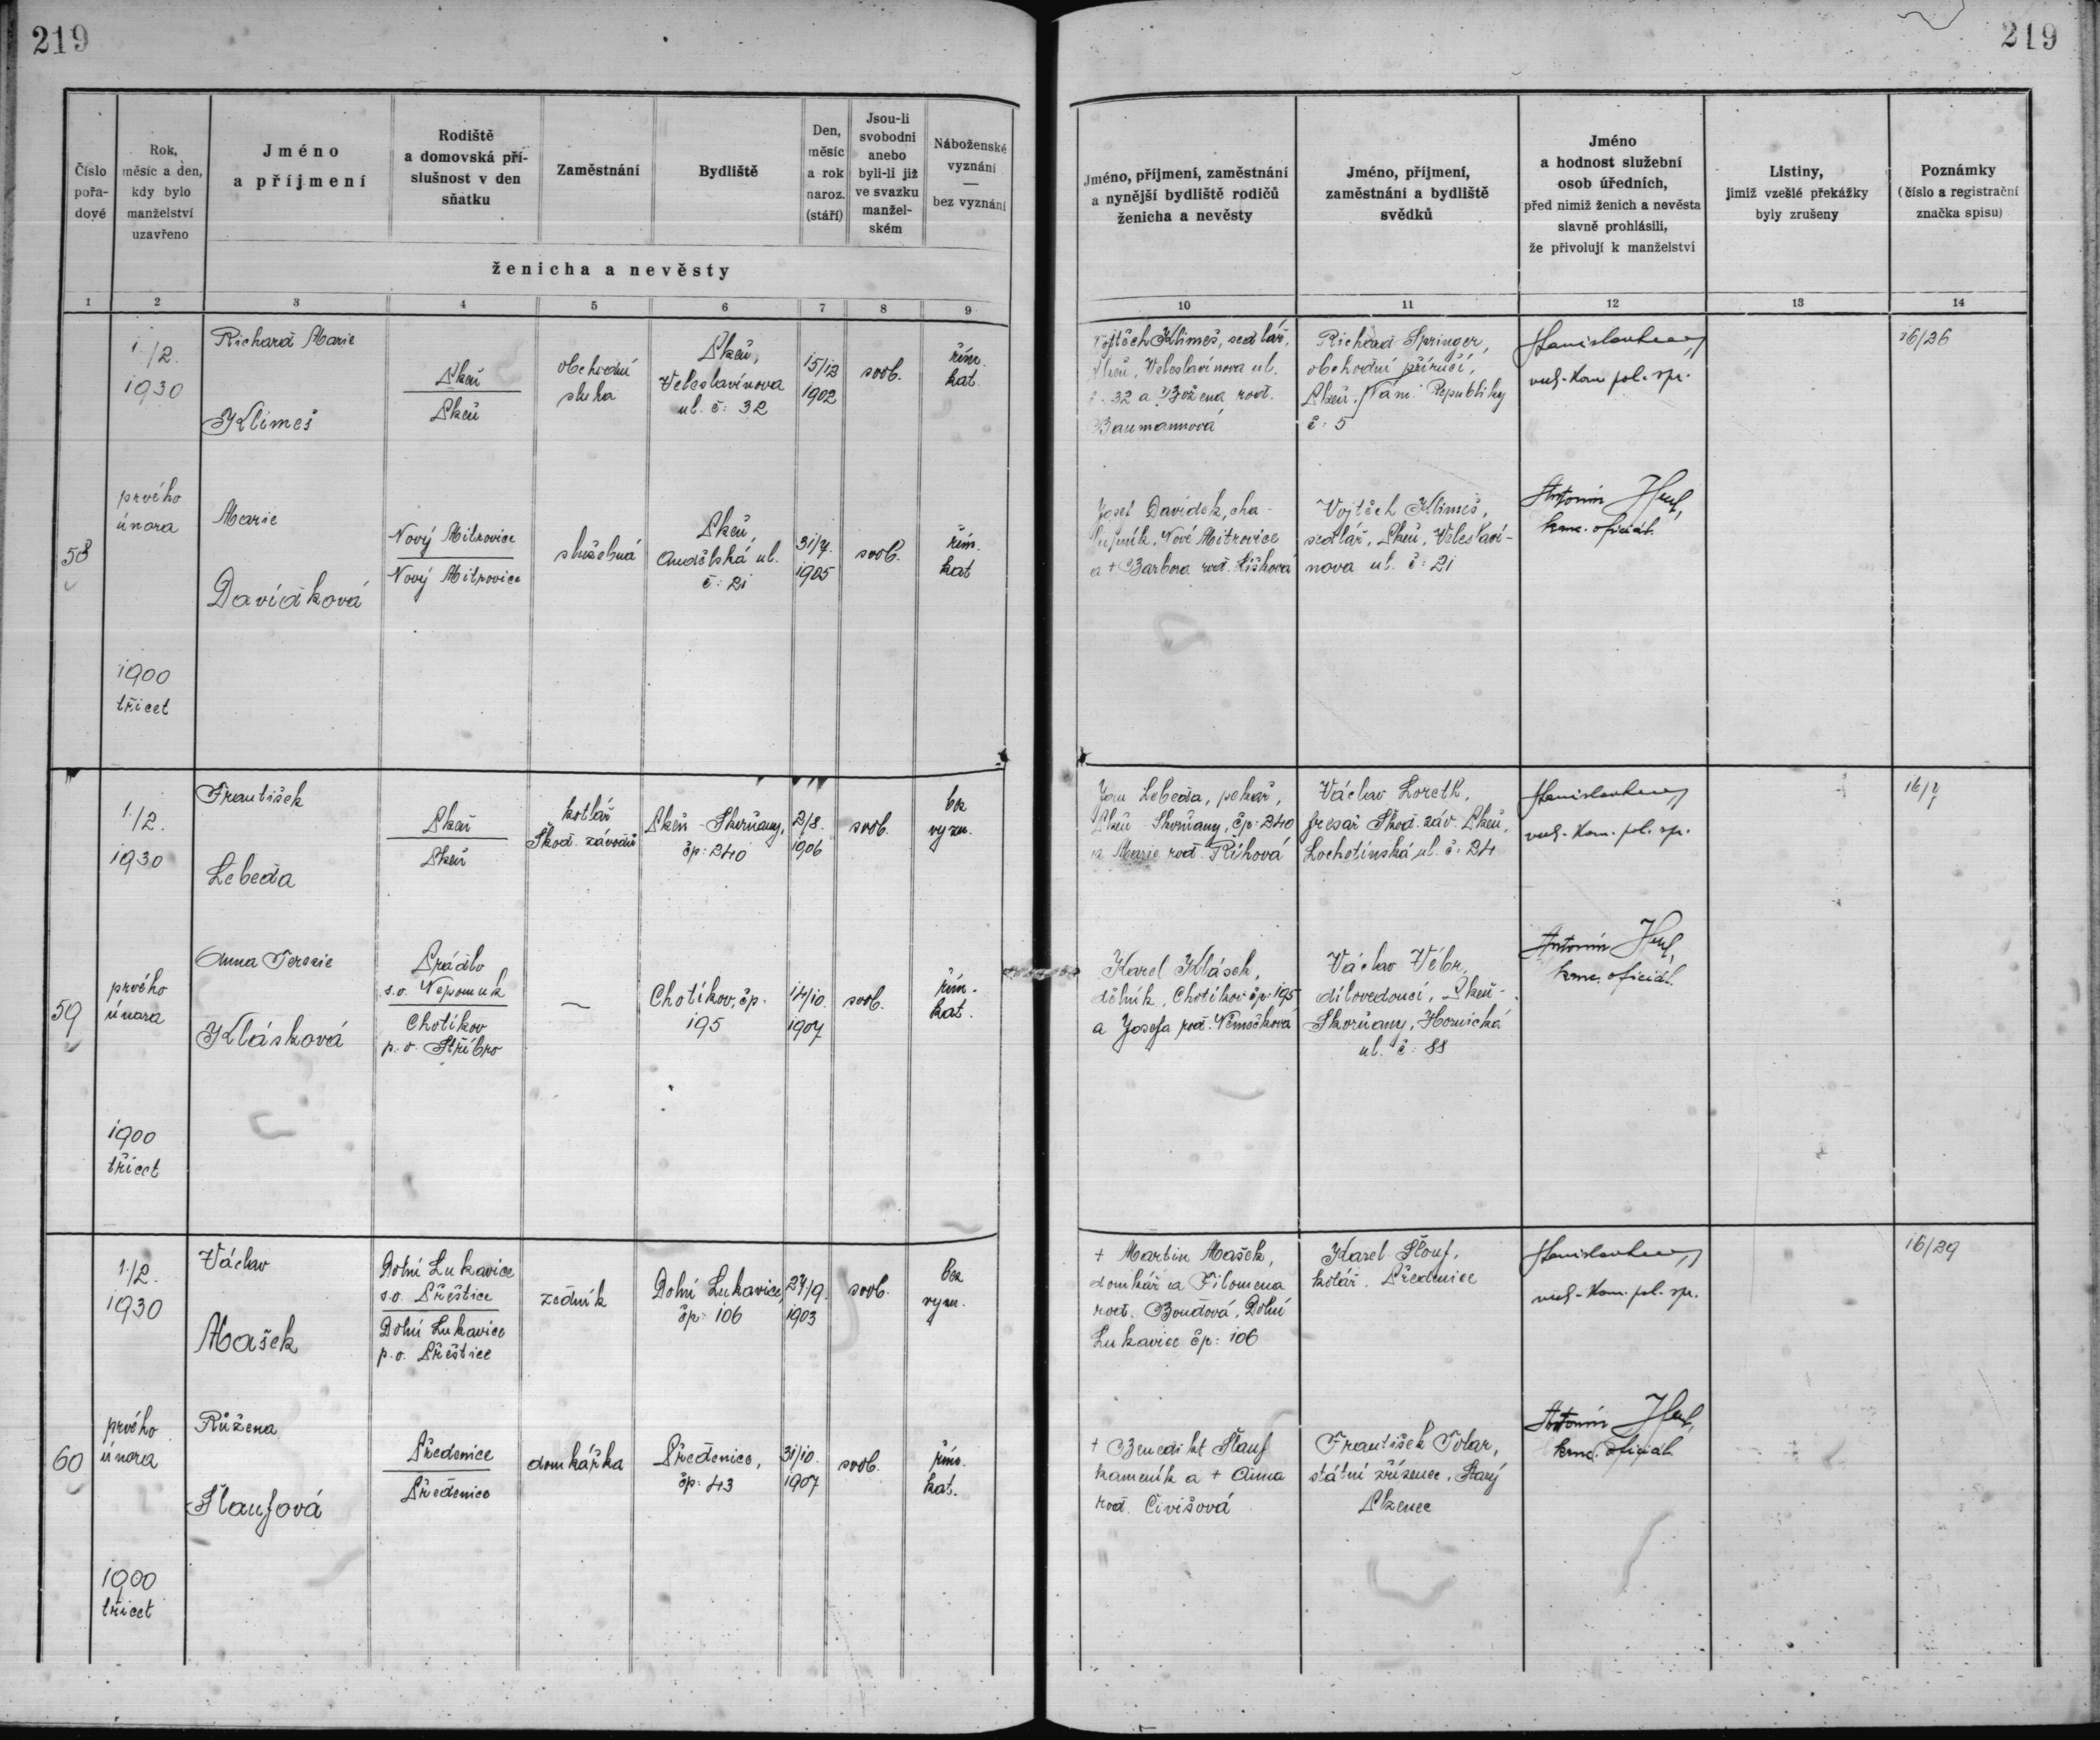 219
219
Číslo pořa- dové
Rok, měsíc a den, kdy bylo manželství uzavřeno
Jméno a příjmení
Rodiště a domovská pří- slušnost v den sňatku
Zaměstnání
Bydliště
Den, měsíc a rok naroz. (stáří)
Jsou-li svobodni anebo byli-li již ve svazku manžel- ském
Náboženské vyznání — bez vyznání
ženicha a nevěsty
Jméno, příjmení, zaměstnání a nynější bydliště rodičů ženicha a nevěsty
Jméno, příjmení, zaměstnání a bydliště svědků
Jméno a hodnost služební osob úředních, před nimiž ženich a nevěsta slavně prohlásili, že přivolují k manželství
Listiny, jimiž vzešlé překážky byly zrušeny
Poznámky (číslo a registrační značka spisu)
1 2 3 4 5 6 7 8 9 10 11 12 13 14
58
1./2.
1930
prvého
února
1900
třicet
Richard Marie
Klimeš
Plzeň
Plzeň
obchodní
sluha
Plzeň,
Veleslavínova
ul. č: 32
15/12
1902
svob.
řím.
kat.
Vojtěch Klimeš, sedlář,
Plzeň, Veleslavínova ul.
č. 32 a Božena rod.
Baumannová
Richard Springer,
obchodní příručí,
Plzeň, Nám. Republiky
č: 5
16/26
Marie
Davídková
Nový Mitrovice
Nový Mitrovice
služebná
Plzeň,
Andělská ul.
č: 21
31/7.
1905
svob.
řím.
kat
Josef Davídek, cha-
lupník, Nové Mitrovice
a + Barbora rod. Lišková
Vojtěch Klimeš,
sedlář, Plzeň, Veleslaví-
nova ul. č: 21
Antonín
kanc. oficiál.
59
1./2.
1930
prvého
února
1900
třicet
František
Lebeda
Plzeň
Plzeň
kotlář
Škod. závodů
Plzeň-Skvrňany,
čp: 240
2/8.
1906
svob.
bez
vyzn.
Jan Lebeda, pekař,
Plzeň-Skvrňany, čp: 240
a Marie rod. Říhová
Václav Loreth,
fresař Škod. záv. Plzeň,
Lochotínská ul. č: 24
Anna Terezie
Klásková
Prádlo
s.o. Nepomuk
Chotíkov
p.o. Stříbro
—
Chotíkov, čp.
195
14/10.
1907
svob.
řím.
kat.
Karel Klásek,
dělník, Chotíkov čp: 195
a Josefa rod. Němečková
Václav Vébr,
dílovedoucí, Plzeň-
Skvrňany, Hornická
ul. č: 88
Antonín
kanc. oficiál.
60
1./2.
1930
prvého
února
1900
třicet
Václav
Mašek
Dolní Lukavice
s.o. Přeštice
Dolní Lukavice
p.o. Přeštice
zedník
Dolní Lukavice,
čp: 106
27/9.
1903
svob.
bez
vyzn.
+ Martin Mašek,
domkář a Filomena
rod. Boudová, Dolní
Lukavice čp: 106
Karel Štouf,
kolář, Předenice
16/29
Růžena
Štaufová
Předenice
Předenice
domkářka
Předenice,
čp: 43
31/10.
1907
svob.
řím.
kat.
+ Benedikt Štauf
kameník a + Anna
rod. Čivišová
František Tolar,
státní zřízenec, Starý
Plzenec
Antonín
kanc. oficiál